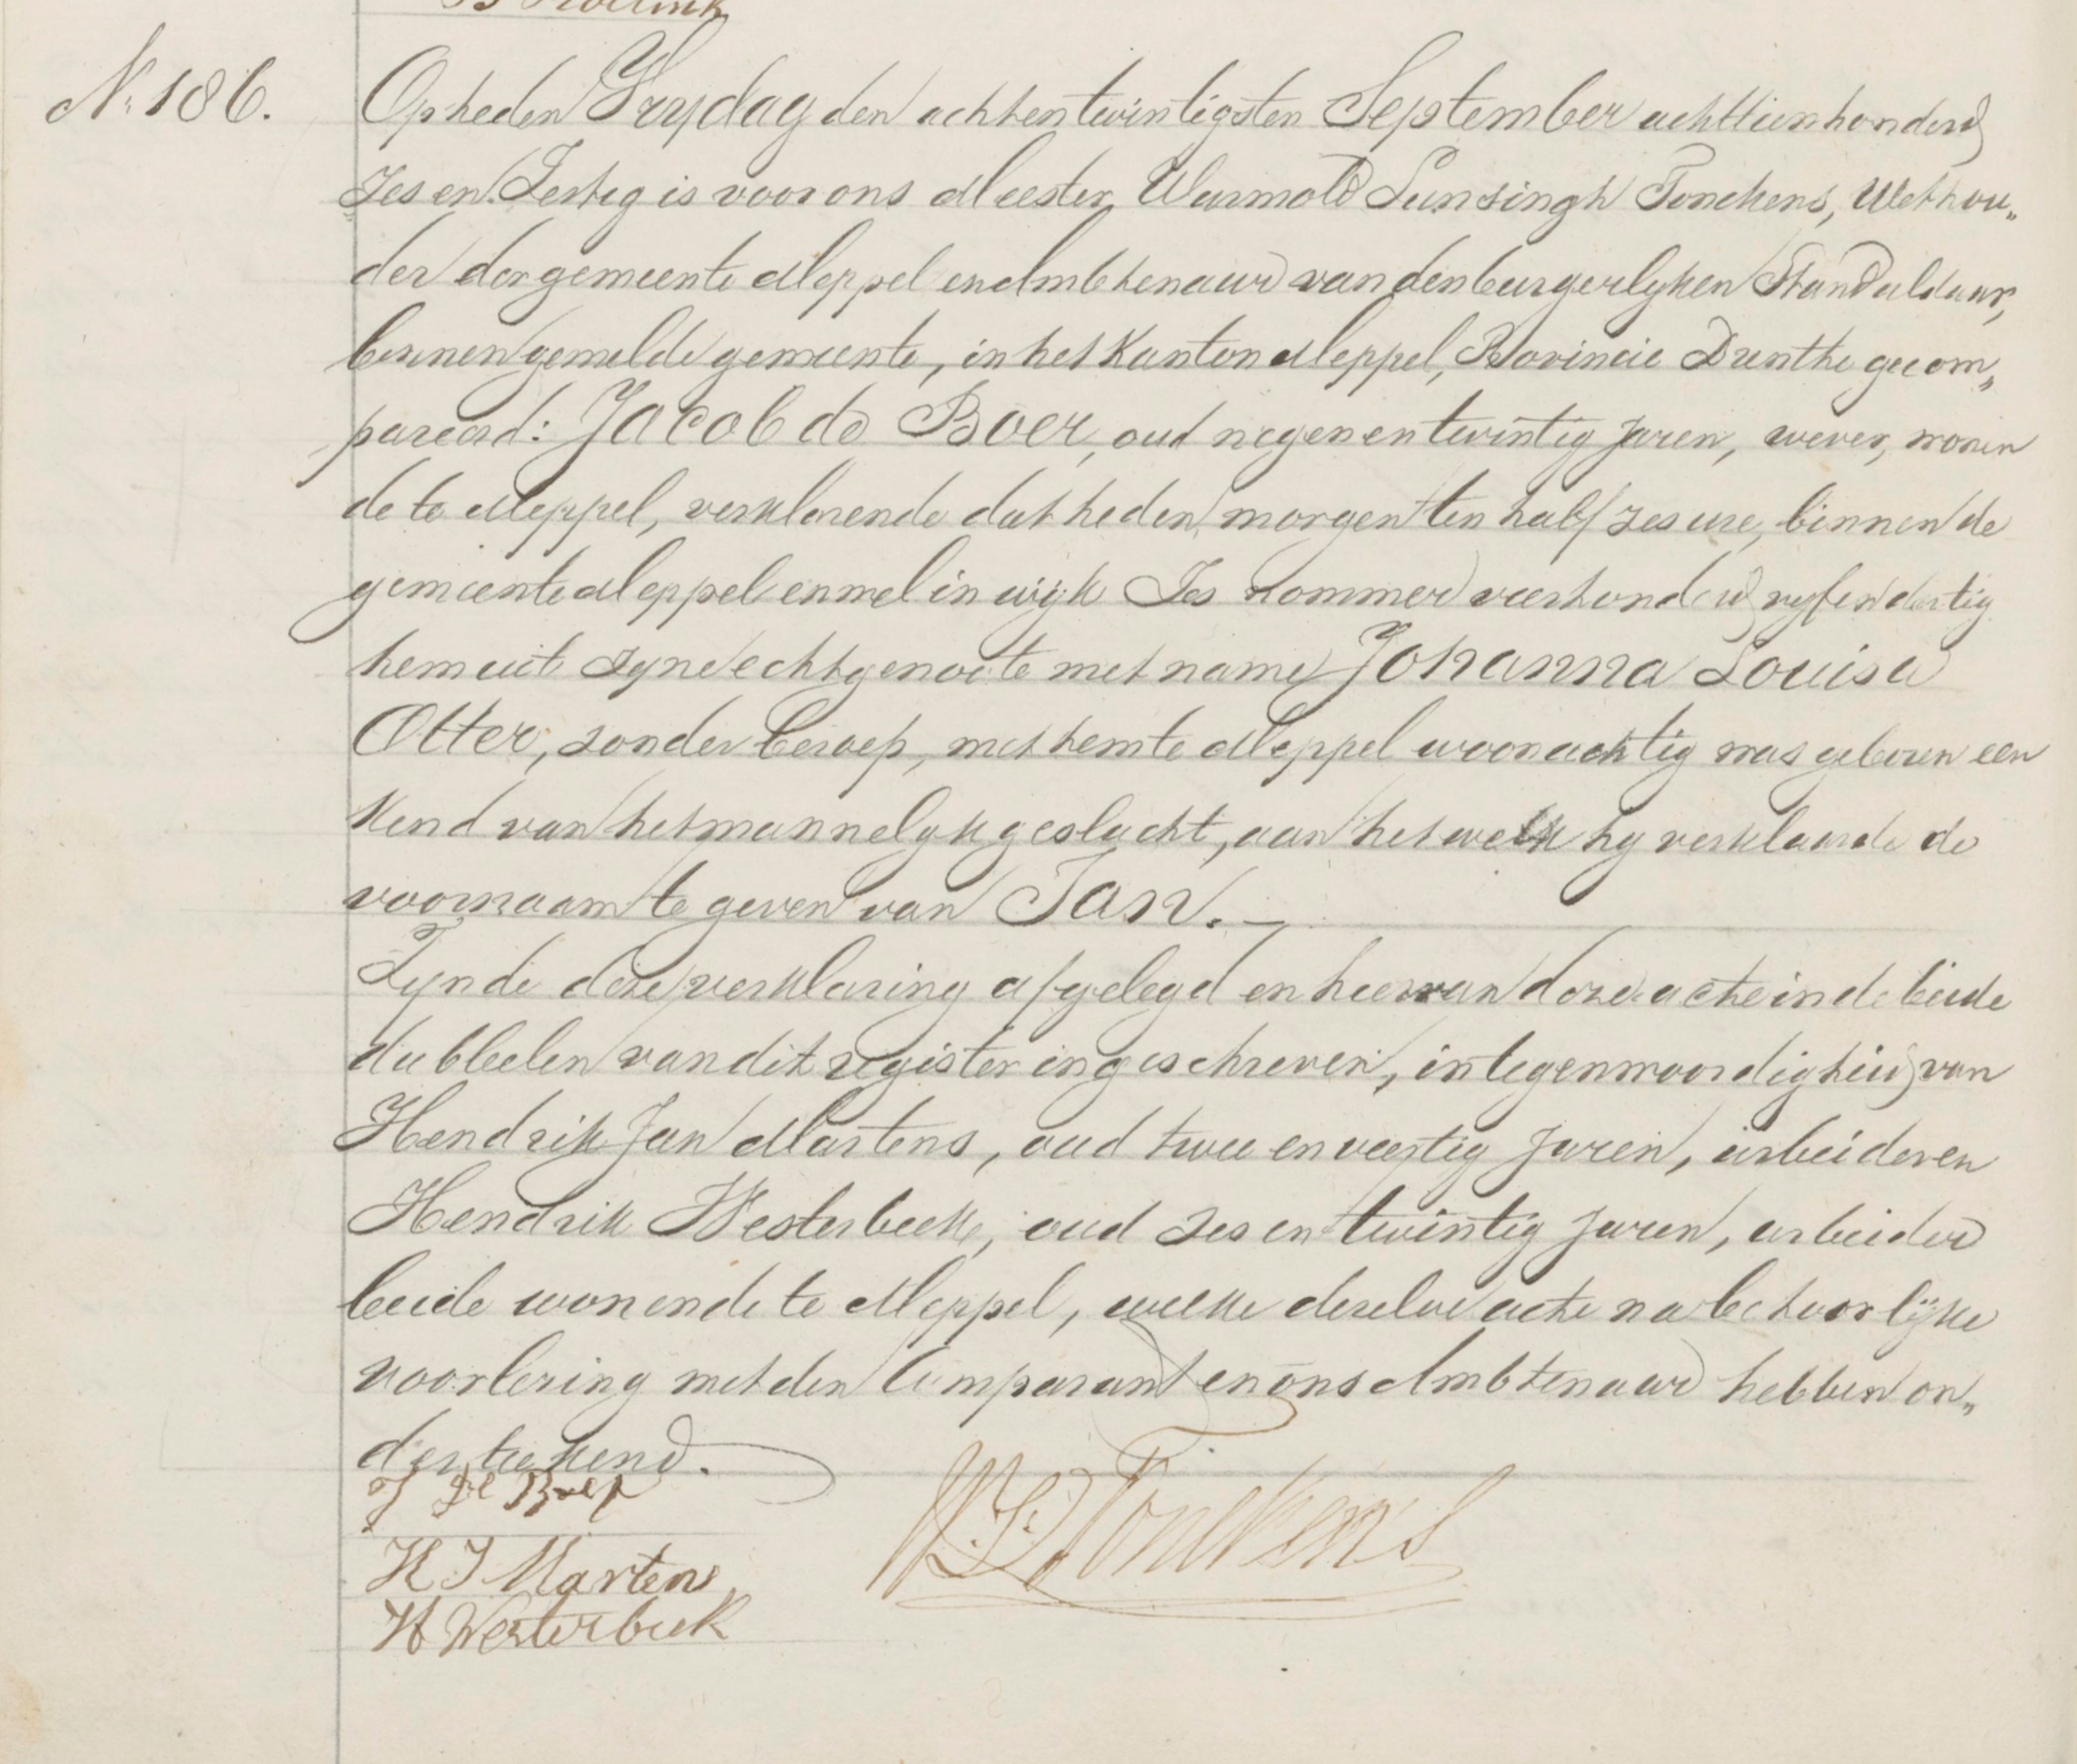 N. 186.
Op heden Vrydag den achtentwintigsten September achttienhonderd
zes en Zestig is voor ons Meester Warmold Lunsingh Tonckens, Wethou„
der der gemeente Meppel en Ambtenaar van den burgerlyken Stand aldaar,
binnen gemelde gemeente, in het Kanton Meppel, Provincie Drenthe gecom„
pareerd: Jacob de Boer, oud negenentwintig jaren, wever, wonen
de te Meppel, verklarende dat heden morgen ten half zes ure, binnen de
gemeente Meppel en wel in wijk Zes nommer vierhonderd vyfendertig
hem uit zyne echtgenoote met name Johanna Louisa
Otter, zonder beroep, met hem te Meppel woonachtig was geboren een
Kind van het mannelyk geslacht, aan het welk hy verklaarde de
voornaam te geven van Jan. —
Zynde deze verklaring afgelegd en hiervan deze acte in de beide
dubbelen van dit register ingeschreven, in tegenwoordigheid van
Hendrik Jan Martens, oud twee en veertig jaren, arbeider en
Hendrik Westerbeek, oud zes en twintig jaren, arbeider
beide wonende te Meppel, welke dezelve acte na behoorlijke
voorlezing met den Comparant en ons Ambtenaar hebben on„
derteekend.
J de Boer
W. L. Tonckens
H J Martens
H Westerbeek